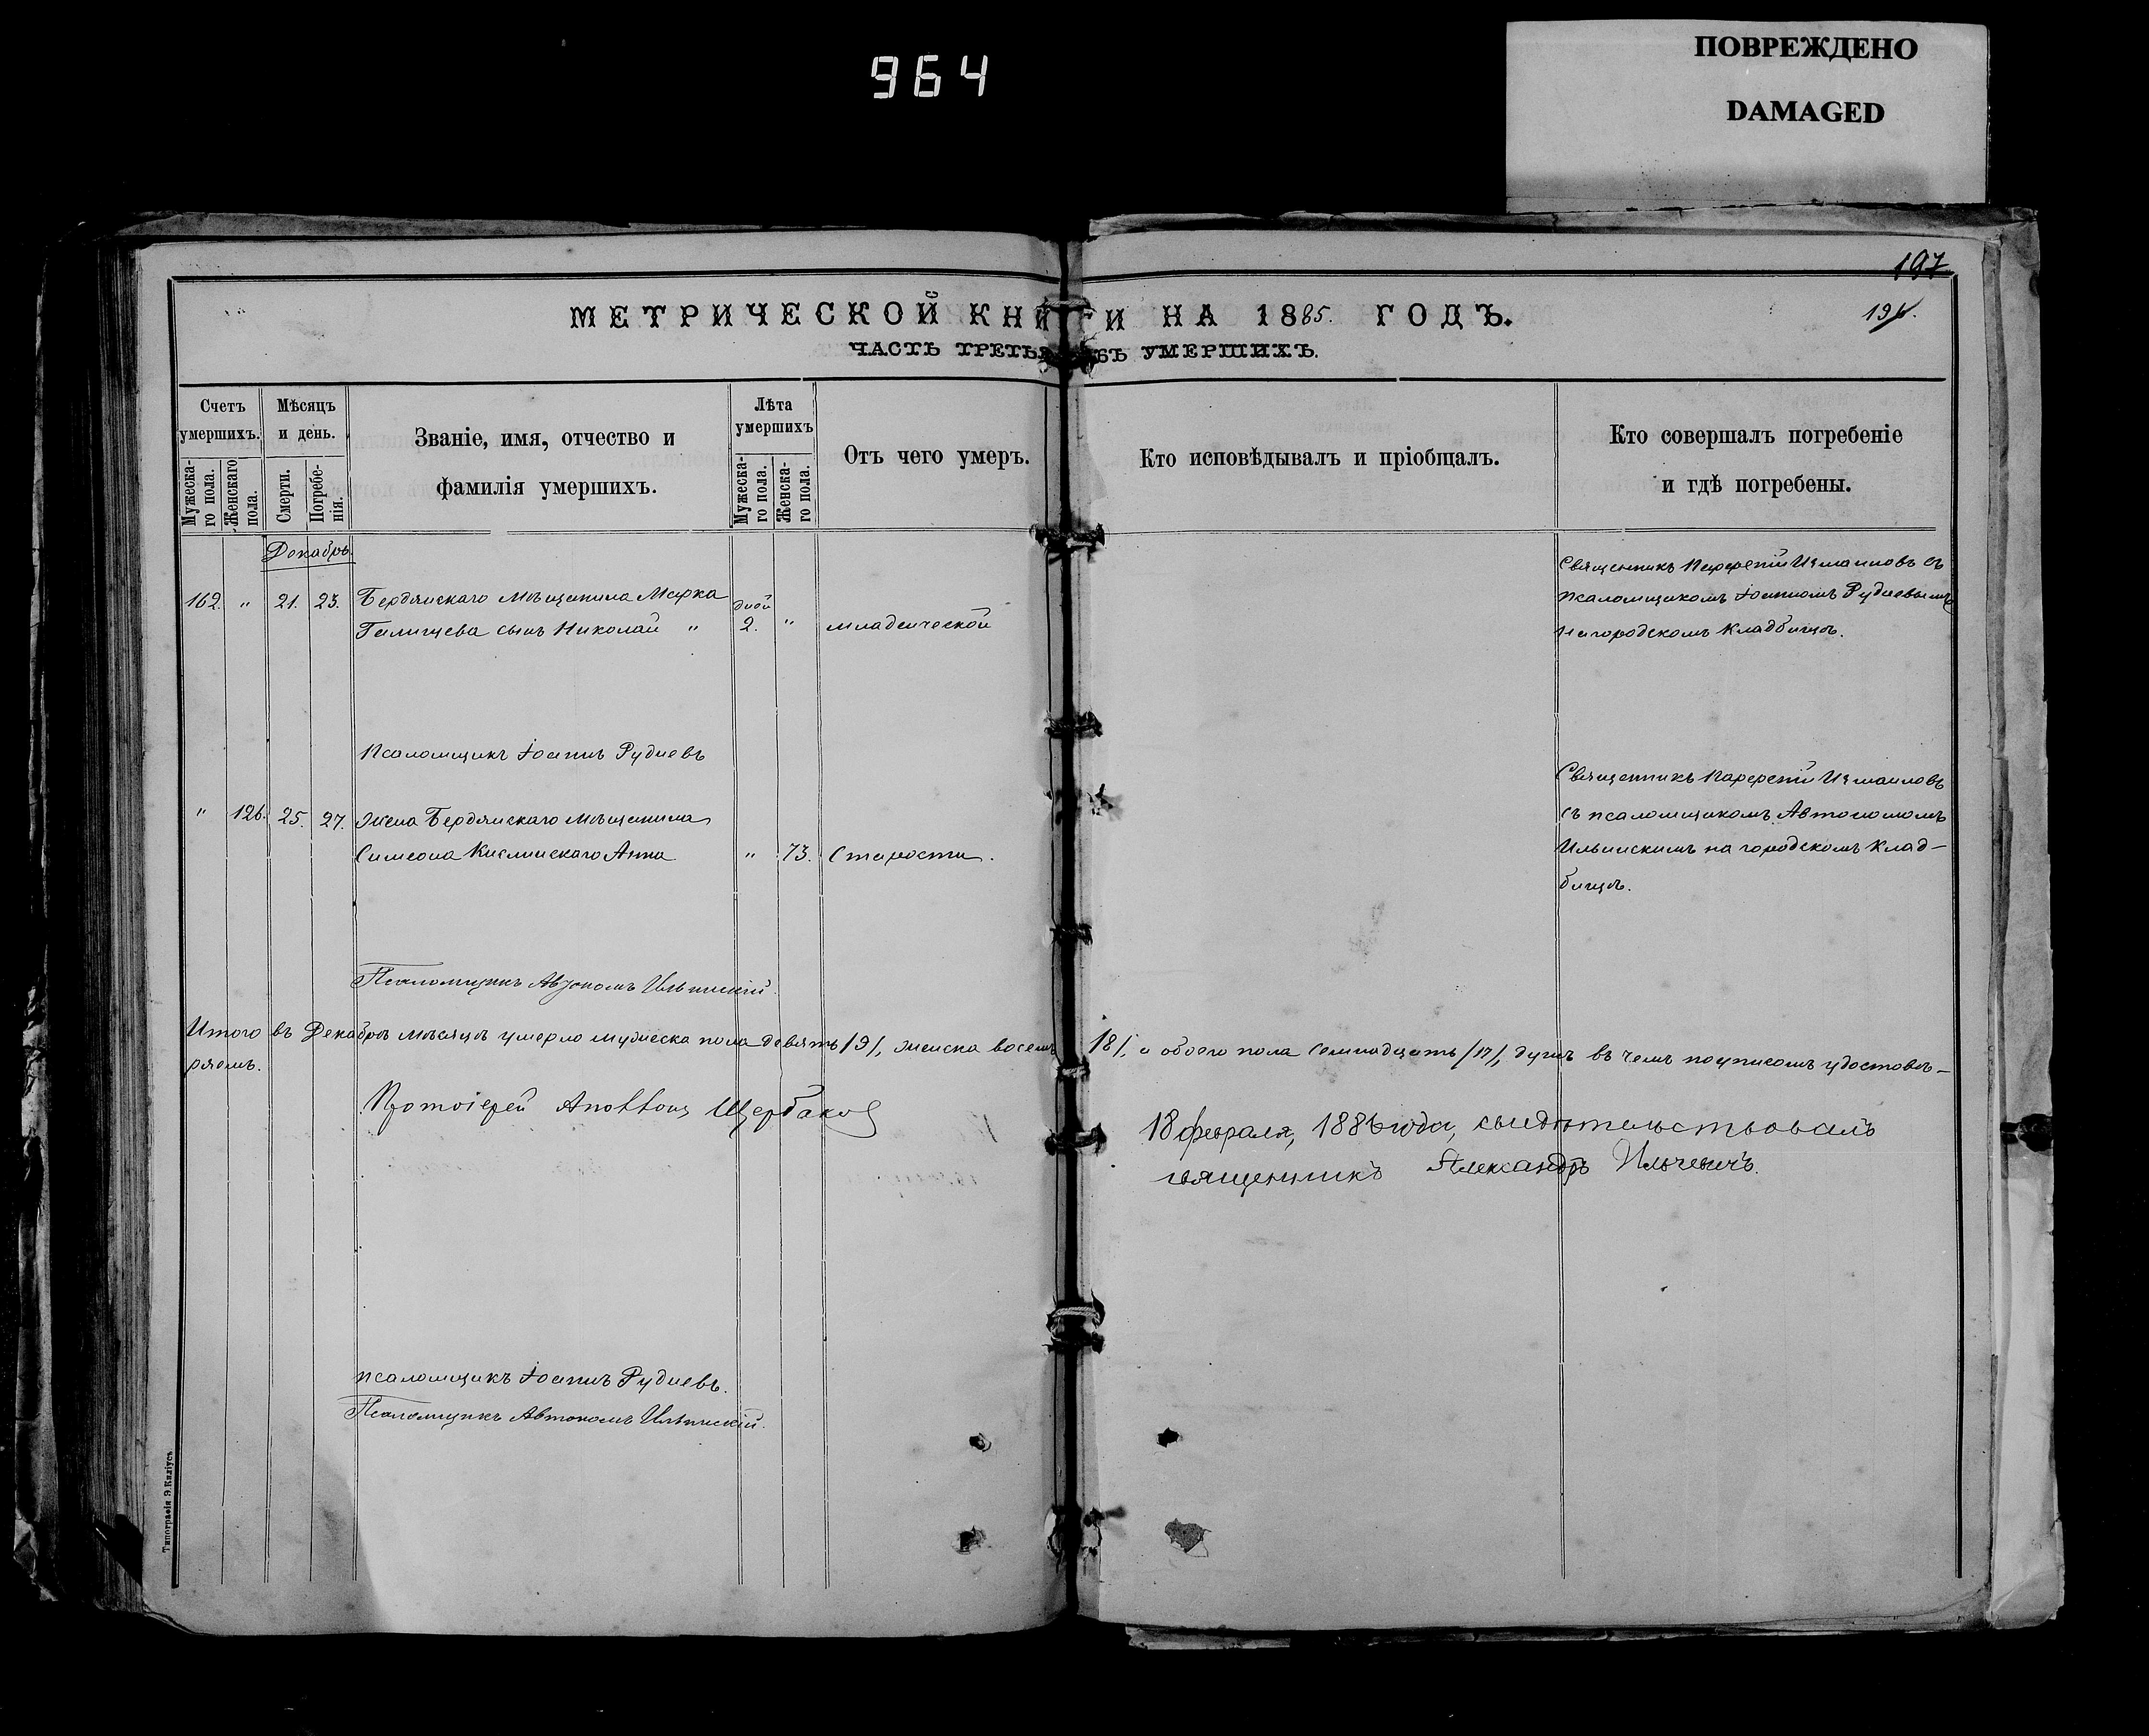 964
ПОВРЕЖДЕНО
DAMAGED
197
МЕТРИЧЕСКОЙ КНИГИ НА 1885. ГОДЪ.
ЧАСТЬ ТРЕТЬЯ УМЕРШИХЪ.
Счетъ умершихъ.
Мужеска-го пола.
Женскаго пола.
Мѣсяцъ и день.
Смерти.
Погребе-нія.
Званіе, имя, отчество и
фамилія умершихъ.
Лѣта умершихъ
Мужеска-го пола.
Женска-го пола.
Отъ чего умеръ.
Кто исповѣдывалъ и пріобщалъ.
Кто совершалъ погребеніе
и гдѣ погребены.
Декабрь.
162. " 21. 23. Бердянскаго Мѣщанина Марка
сынъ Николай " дней 2. " младенческой
Священникъ Парфеній Измаиловъ съ
псаломщикомъ Іоанномъ Рудневымъ
на городскомъ кладбищѣ.
Псаломщикъ Іоаннъ Рудневъ
" 126. 25. 27. Жена Бердянскаго Мѣщанина
Симеона Анна " 73. Старости.
Священникъ Парфеній Измаиловъ
съ псаломщикомъ Автономомъ
Ильинскимъ на городскомъ клад-
бищѣ.
Псаломщикъ Автономъ Ильинскій.
Итого въ Декабрѣ мѣсяцѣ умерло мужеска пола девять /9/, женска восемь /8/, а обоего пола семнадцать /17/, душъ въ чемъ подписомъ удостовѣ-
ряемъ.
Протоіерей Щербаковъ
18 февраля, 1886 года, свидѣтельствовалъ
священникъ Александръ Ильчевичъ.
псаломщикъ Іоаннъ Рудневъ.
Псаломщикъ Автономъ Ильинскій.
Типографія Э. Киліусъ